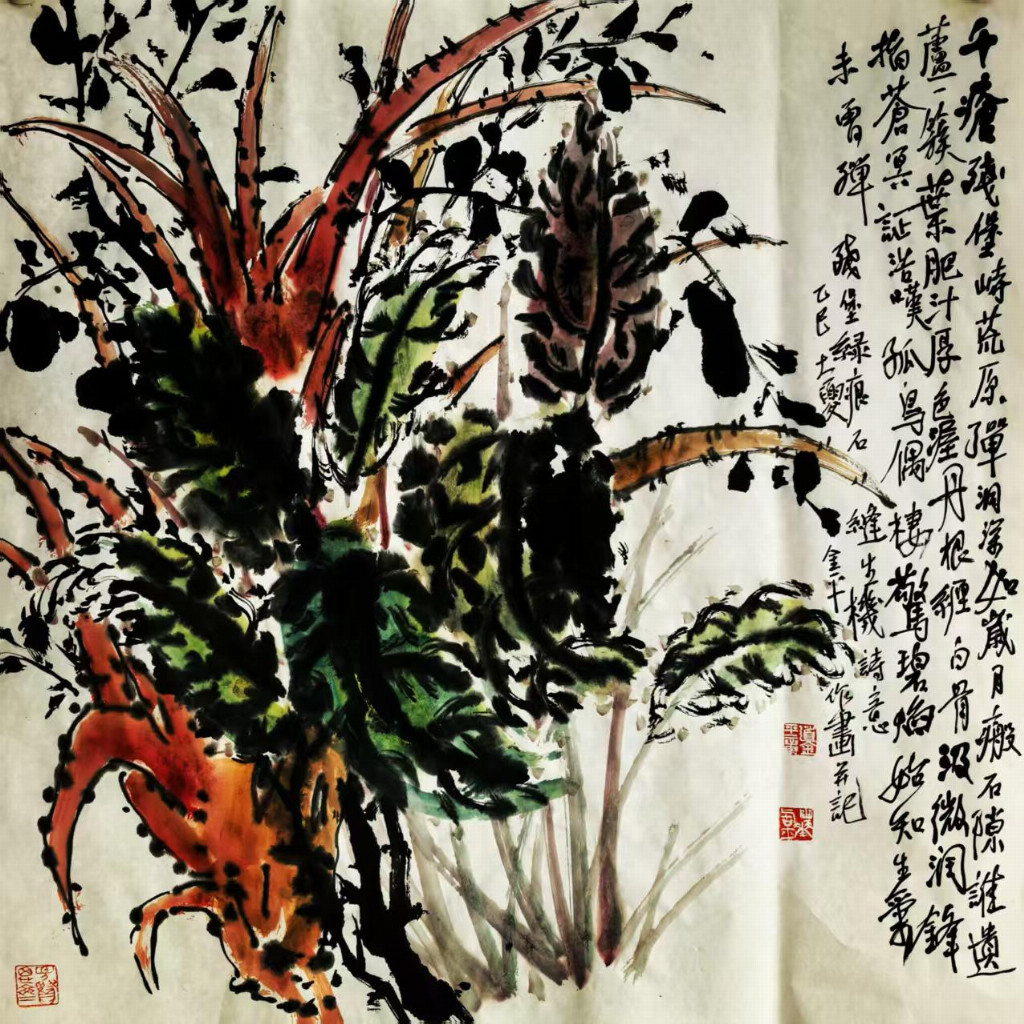 千瘡殘堡峙荒原彈洞深如歲月瘢石隙誰遺
蘆一簇葉肥汁厚色渥丹根纏白骨汲微潤鋒
指蒼冥証浩嘆孤鳥偶棲驚碧焰始知生氣
未曾殫 殘堡綠痕石縫生機詩意
乙巳 作畫并記